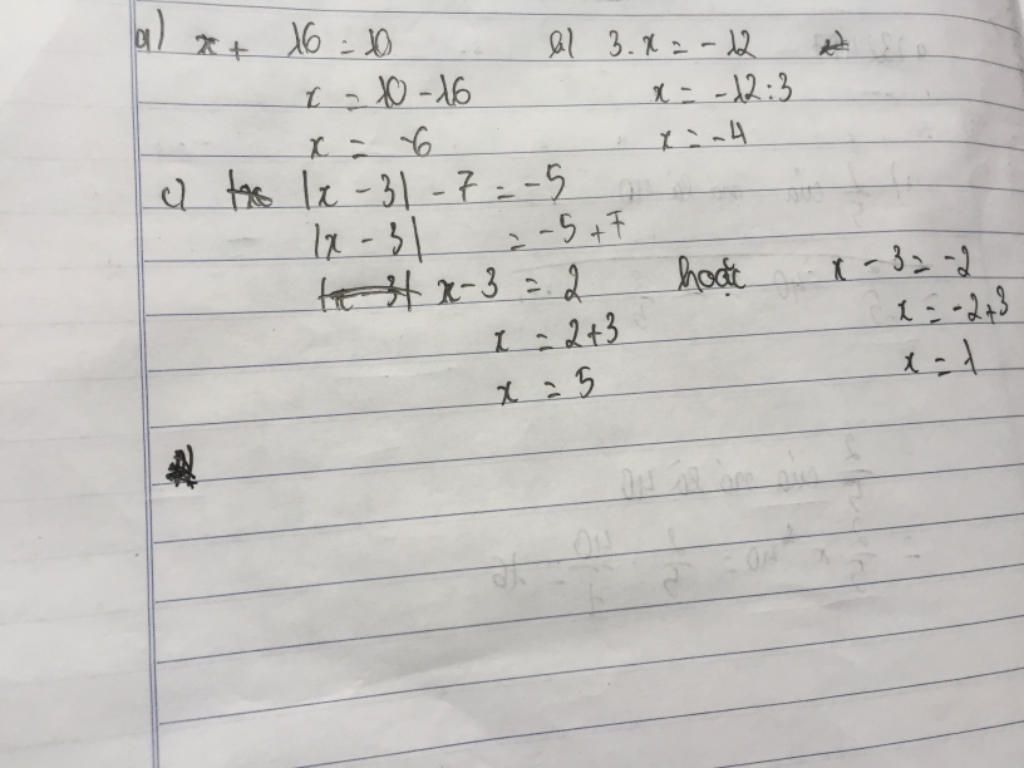 a) x + 16 = 10
x = 10 - 16
x = -6
a) 3.x = -12
x = -12:3
x = -4
c) |x - 3| - 7 = -5
|x - 3| = -5 + 7
x - 3 = 2 hoặc x - 3 = -2
x = 2+3 x = -2+3
x = 5 x = 1